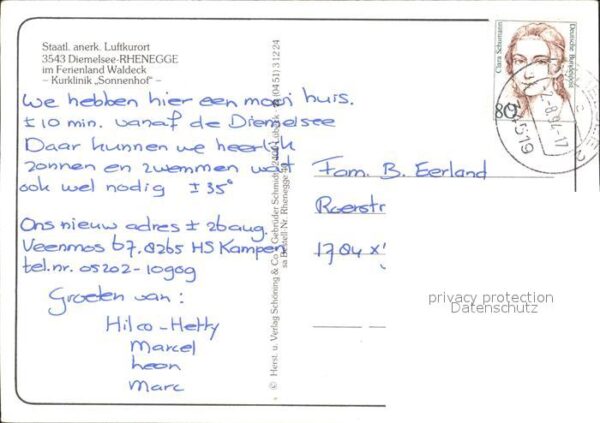 Staatl. anerk. Luftkurort
3543 Diemelsee-RHENEGGE
im Ferienland Waldeck
– Kurklinik „Sonnenhof" –
We hebben hier een mooi huis.
± 10 min. vanaf de Diemelsee
Daar kunnen we heerlijk
zonnen en zwemmen wat
ook wel nodig ± 35°
Ons nieuw adres ± 26 aug.
Veenmos 67, 8265 HS Kampen
tel.nr. 05202-10909
Groeten van:
Hilco-Hetty
Marcel
Leon
Marc
© Herst. u. Verlag Schöning & Co + Gebrüder Schmidt, Lübeck (04 51) 3 12 24
Bestell-Nr. Rhenegge
Clara Schumann
Deutsche Bundespost
80
-8.94-17
Fam. B. Eerland
Roerstr
1784
privacy protection
Datenschutz